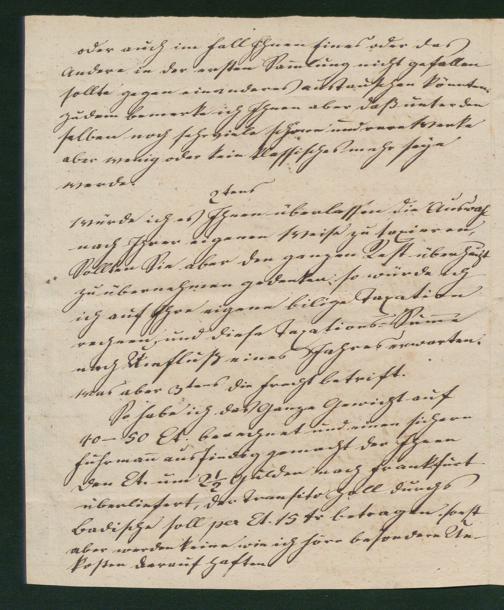 oder auch im fall Ihnen Eines oder das
Andere in der ersten Samlung nicht gefallen
sollte gegen ein anderes austauschen könnten.
zudem bemerke ich Ihnen aber daß unter den
selben noch sehr viele schöne und rare Werke
aber wenig oder kein klassisches mehr seyn
werde.
2tens
würde ich es Ihnen überlassen die Auswahl
nach Ihrer eigenen Weise zu taxieren
Sollten Sie aber den ganzen Rest überhaupt
zu übernehmen gedenken; so würde ich
ich auf Ihre eigene bilige Taxation
rechnen, und diese Taxations-Summe
nach Umfluß eines Jahres erwarten.
was aber 3tens die fracht betrift.
So habe ich das Ganze Gewicht auf
40-50 Ct. berechnet und einen sichern
fuhrmann ausfindig gemacht der Ihnen
den Ct. um 2½ Gulden nach Frankfurt
überliefert, der Transito Zoll durchs
Badische soll per Ct. 15 kr betragen, sonst
aber werden keine wie ich höre besondere Un-
kosten darauf haften